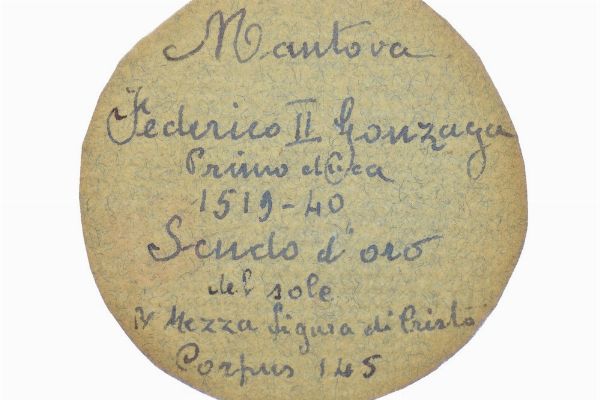 Mantova
Federico II Gonzaga
Primo duca
1519-40
Scudo d'oro
del sole
℞ Mezza figura di Cristo
Corpus 145